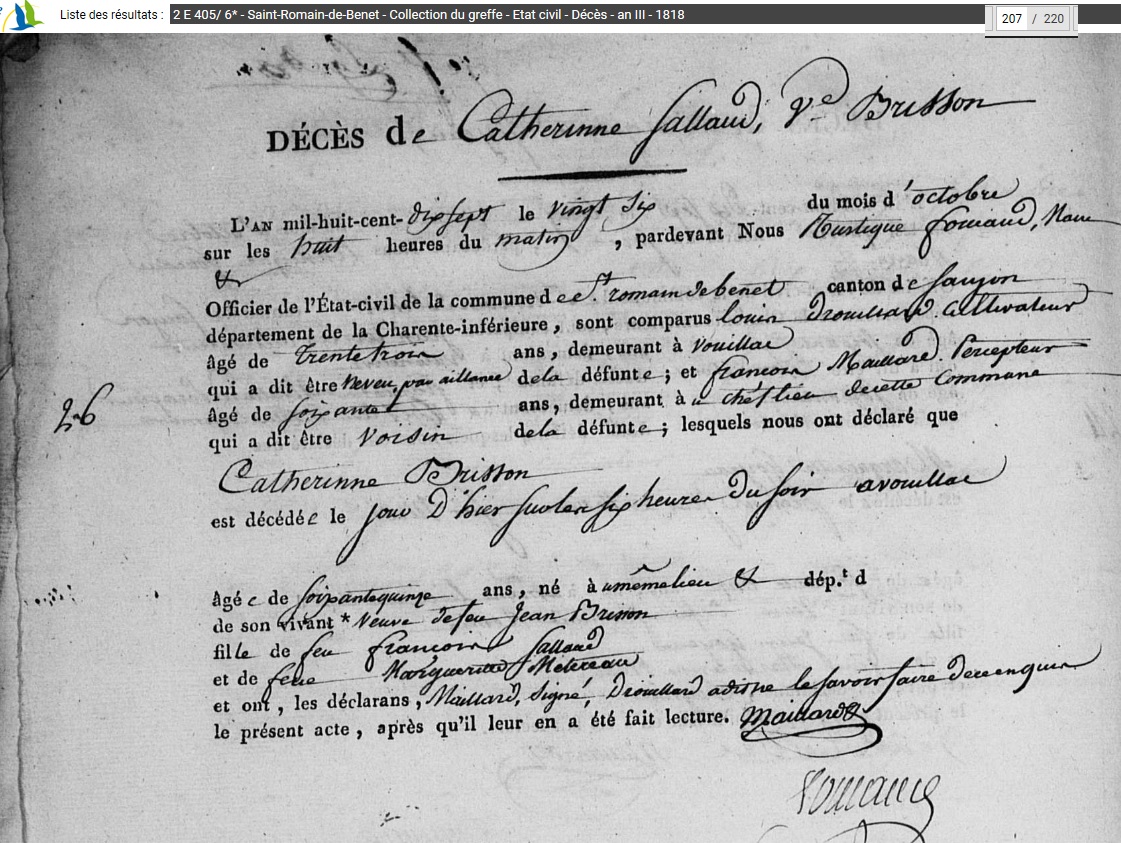 Liste des résultats : 2 E 405/ 6* - Saint-Romain-de-Benet - Collection du greffe - Etat civil - Décès - an III - 1818 207 / 220
DÉCÈS de Catherinne Sallaud, Ve Brisson
L'AN mil-huit-cent-dix sept le vingt six du mois d'octobre
sur les huit heures du matin, pardevant Nous Rustique fouaud, Maire
&
Officier de l'État-civil de la commune de St. romain de benet canton de Saujon
département de la Charente-inférieure, sont comparus louis Drouillard Cultivateur
âgé de Trente trois ans, demeurant à vouillac
qui a dit être Neveu par aillance de la défunte; et francois Maillard. Percepteur
âgé de soixante ans, demeurant à chef lieu de cette Commune
26
qui a dit être voisin de la défunte; lesquels nous ont déclaré que
Catherinne Brisson
est décédée le jour D'hier sur les six heures du soir a vouillac
âgée de soixante quinze ans, né à u même lieu & dép.t d
de son vivant * Veuve de feu Jean Brisson
fille de feu françois Sallaud
et de feue Margueritte Métereau
et ont, les déclarans, Maillard, Signé, Drouillard a dit ne le savoir faire de ce enquis
le présent acte, après qu'il leur en a été fait lecture. Maillard